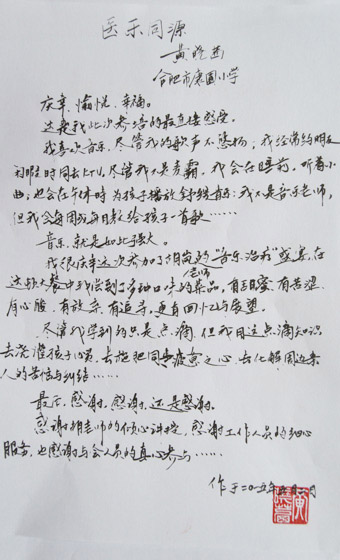 医乐同源
黄晓燕
合肥市康园小学
庆幸、愉悦、幸福。
这是我此次参培的最直接感受。
我喜欢音乐,尽管我的歌声不悠扬;我经常约朋友
闲暇时同去KTV,尽管我不是麦霸,我会在睡前,听着小
曲;也会在午休时为孩子播放舒缓音乐;我不是音乐老师,
但我会每周或每日教给孩子一首歌……
音乐,就是如此强大。
我很庆幸这次参加了胡老师的“音乐治疗”盛宴,在
这顿大餐中我尝到了多种口味的菜品,有甜蜜、有苦涩、
有心酸、有放弃、有追寻,更有回忆与展望。
尽管我学到的只是点滴,但我用这点滴知识
去浇灌孩子心灵、去抱抱同事疲惫之心、去化解周边亲
人的苦恼与纠结……
最后,感谢、感谢、还是感谢。
感谢胡老师的倾心讲授,感谢工作人员的细心
服务,也感谢与会人员的真心参与……
作于二〇一五年 月